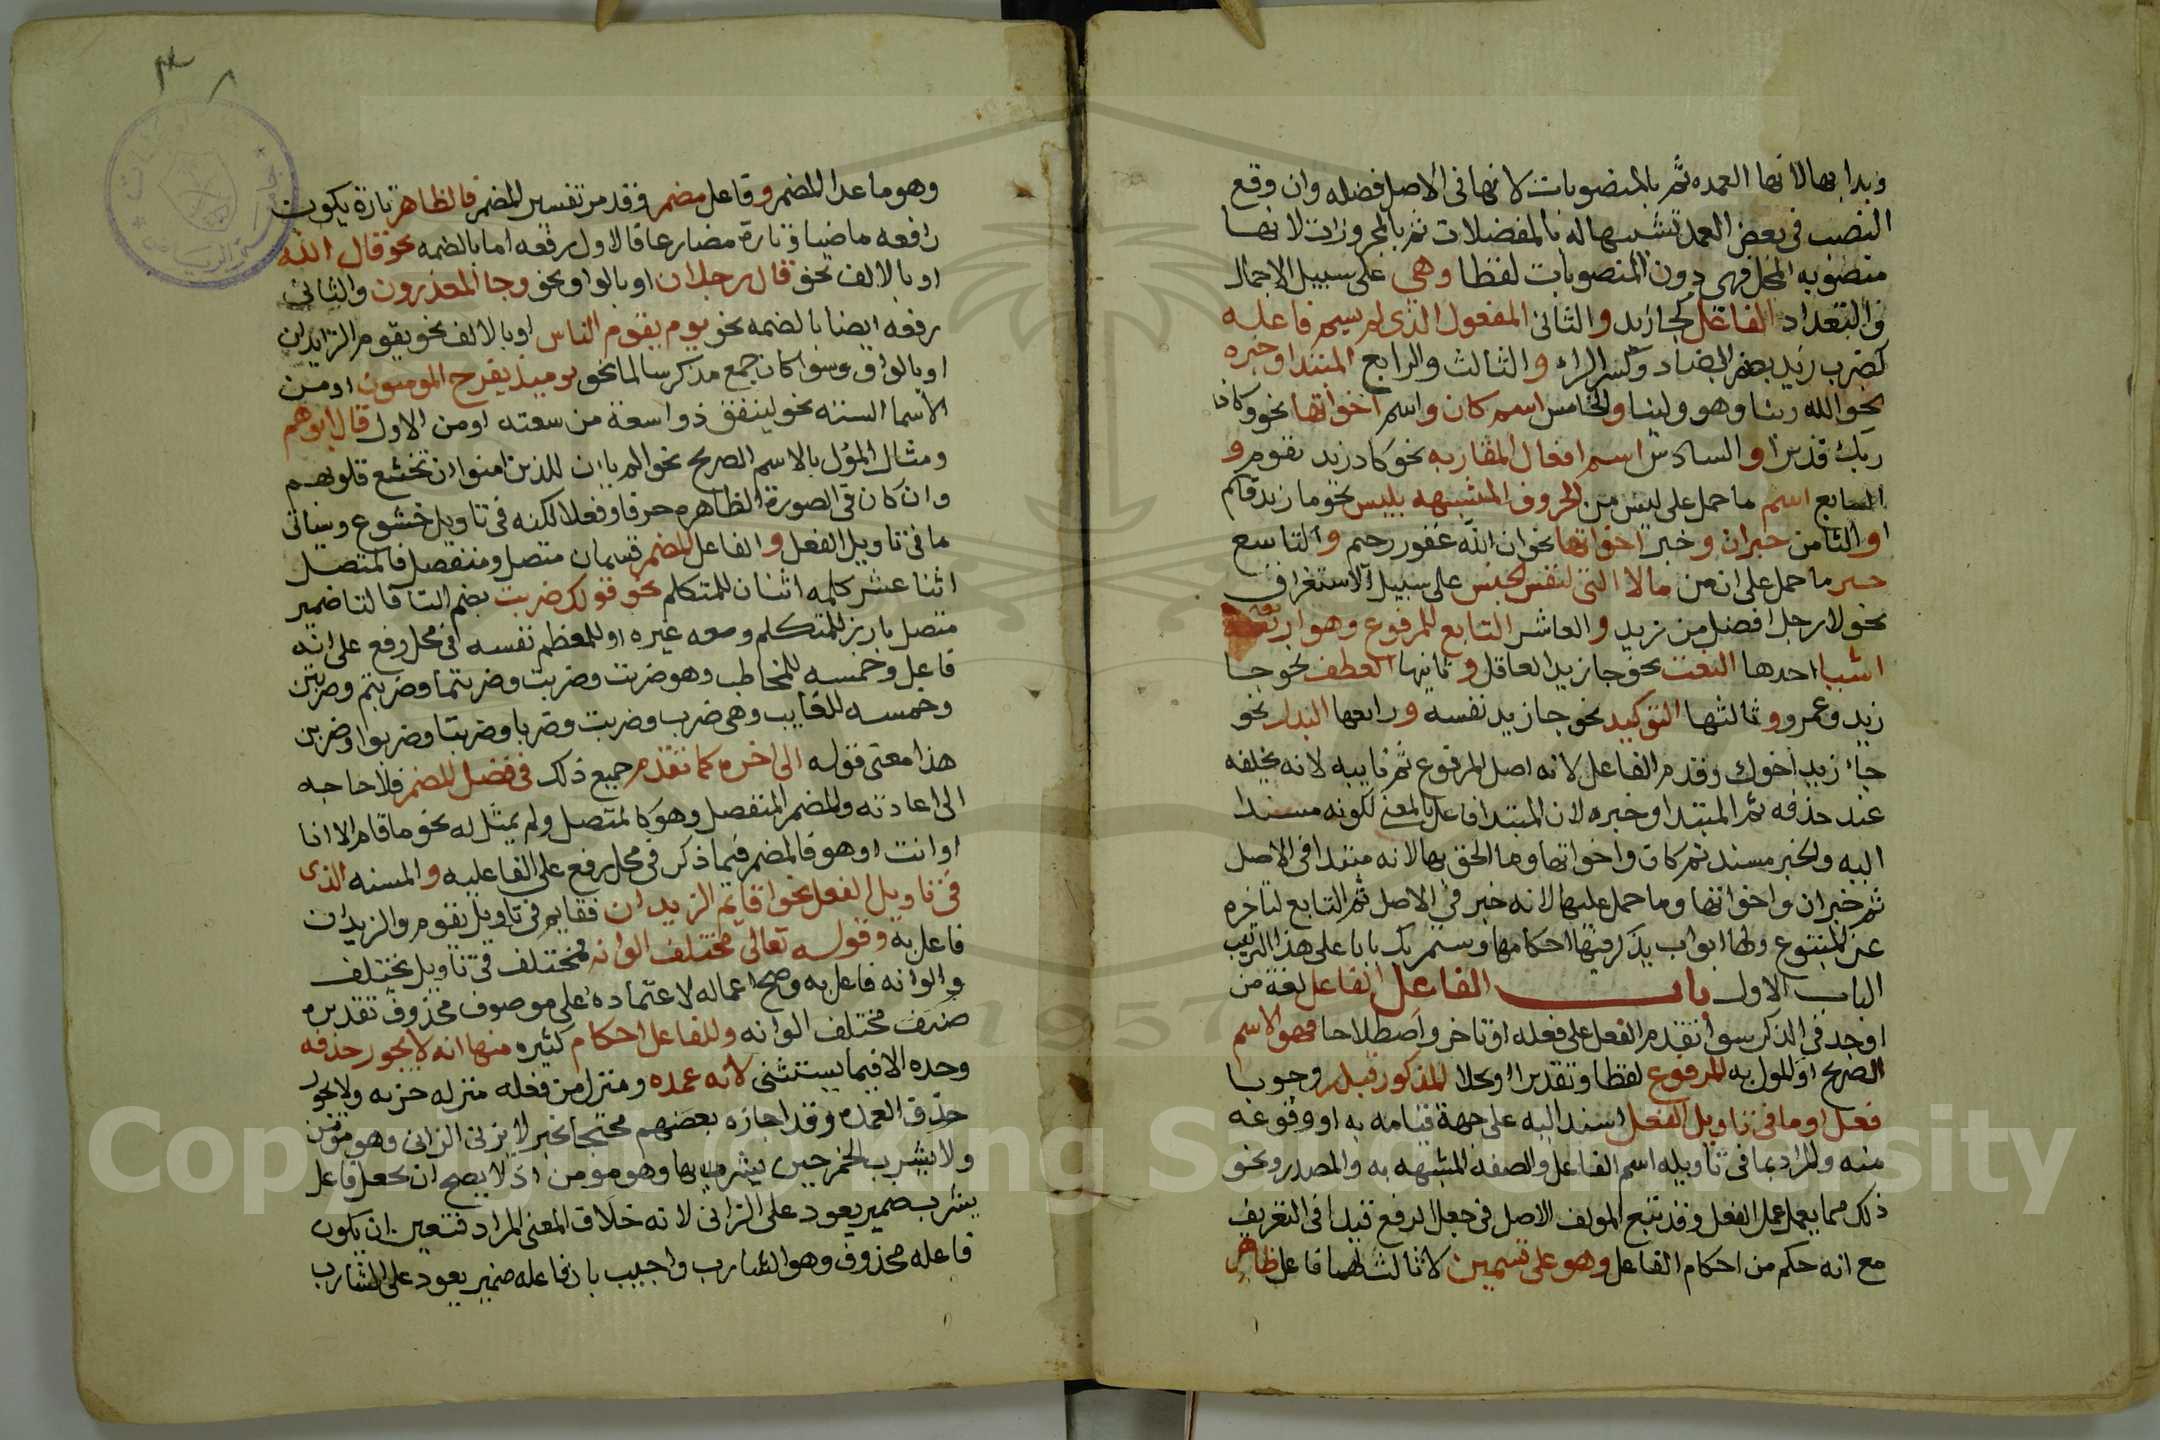 وبدا بها لانها العمده ثم بالمنصوبات لانها في الاصل فضله وان وقع
النصب في بعض العمد تشبيها له بالفضلات ثم بالمجرورات لانها
منصوبه المحل فهي دون المنصوبات لفظا وهي على سبيل الاجمال
والتعداد الفاعل كجا زيد والثاني المفعول الذي لم يسم فاعله
كضرب زيد بضم الضاد وكسر الراء والثالث والرابع المبتدا وخبره
نحو الله ربنا وهو ولينا والخامس اسم كان واسم اخواتها نحو وكان
ربك قديرا والسادس اسم افعال المقاربه نحو كاد زيد يقوم و
السابع اسم ما حمل على ليس من الحروف المشبهه بليس نحو ما زيد قايم
او والثامن خبر ان وخبر اخواتها نحو ان الله غفور رحيم والتاسع
خبر ما حمل على ان من مالا التي لنفي الجنس على سبيل الاستغراق
نحو لا رجل افضل من زيد والعاشر التابع للمرفوع وهو اربعة
اشيا احدها النعت نحو جا زيد العاقل وثانيها العطف نحو جا
زيد وعمرو وثالثها التوكيد نحو جا زيد نفسه ورابعها البدل نحو
جاء زيد اخوك وقدم الفاعل لانه اصل المرفوع ثم نايبه لانه يخلفه
عند حذفه ثم المبتدا وخبره لان المبتدا فاعل بالمعنى لكونه مسندا
اليه والخبر مسند ثم كان واخواتها وما الحق بها لانه مبتدا في الاصل
ثم خبر ان واخواتها وما حمل عليها لانه خبر في الاصل ثم التابع لتاخره
عن المتبوع ولها ابواب يذكر فيها احكامها وستمر بك بابا على هذا الترتيب
الباب الاول باب الفاعل الفاعل لغة من
اوجد في الذكر سوا تقدم الفعل على فعله او تاخر واصطلاحا فهو الاسم
الصريح او المول به المرفوع لفظا وتقديرا او محلا المذكور قبله وجوبا
فعل او ما في تاويل الفعل اسند اليه على جهة قيامه به او وقوعه
منه والمراد بما في تاويله اسم الفاعل والصفه المشبهه به والمصدر ونحو
ذلك مما يعمل عمل الفعل وقد تبع المولف الاصل في جعل الرفع قيدا في التعريف
مع انه حكم من احكام الفاعل وهو على قسمين لا ثالث لهما فاعل ظاهر
وهو ما عدا المضمر وفاعل مضمر وقد مر تفسير المضمر فالظاهر تارة يكون
رافعه ماضيا وتارة مضارعا فالاول رفعه اما بالضمه نحو قال الله
او بالالف نحو قال رجلان او بالواو نحو وجا المعذرون والثاني
رفعه ايضا بالضمه نحو يوم يقوم الناس او بالالف نحو يقوم الزيدان
او بالواو وسوا كان جمع مذكر سالما نحو يوميذ يفرح المومنون او من
الاسما السته نحو لينفق ذو اسعة من سعته او من الاول قال ابوهم
ومثال المؤل بالاسم الصريح نحو الم يان للذين امنوا ان تخشع قلوبهم
وان كان في الصورة الظاهره حرفا وفعلا لكنه في تاويل خشوع وسياتي
ما في تاويل الفعل والفاعل المضمر قسمان متصل ومنفصل فالمتصل
اثنا عشر كلمه اثنان للمتكلم نحو قولك ضربت بضم التا فالتا ضمير
متصل بارز للمتكلم ومعه غيره او المعظم نفسه في محل رفع على انه
فاعل وخمسه للمخاطب وهو ضربت وضربت وضربتما وضربتم وضربتن
وخمسه للغايب وهي ضرب وضربت وضربا وضربتا وضربوا وضربن
هذا معنى قوله الى اخره كما تقدم جميع ذلك في فصل المضمر فلا حاجه
الى اعادته والمضمر المنفصل وهو كالمتصل ولم يمثل له نحو ما قام الا انا
او انت او هو فالمضمر فيما ذكر في محل رفع على الفاعليه والمسند الذي
في تاويل الفعل نحو اقايم الزيدان فقايم في تاويل يقوم والزيدان
فاعل به وقوله تعالى مختلف الوانه فمختلف في تاويل يختلف
والوانه فاعل به وصح اعماله لاعتماده على موصوف محذوف تقديره
صنف مختلف الوانه وللفاعل احكام كثيره منها انه لا يجوز حذفه
وحده الا فيما يستثنى لانه عمده ومنزل من فعله منزله جزبه ولا يجوز
حذف العمده وقد اجازه بعضهم محتجا بخبر لا يزني الزاني وهو مؤمن
ولا يشرب الخمر حين يشربها وهو مومن اذ لا يصح ان يجعل فاعل
يشرب ضمير يعود على الزاني لانه خلاف المعنى المراد فتعين ان يكون
فاعله محذوف وهو الشارب واجيب بان فاعله ضمير يعود على الشارب